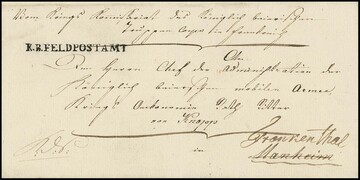 Vom Kriegs Komissariat des Königlich baierischen
Truppen Corps in Frankreich
K.B.FELDPOSTAMT
Dem Herrn Chef der Administration der
Königlich baierschen mobilen Armee,
Kriegs Oekonomie Rath Ritter
von Knopp
Frankenthal
in
Manheim
R. D. S.